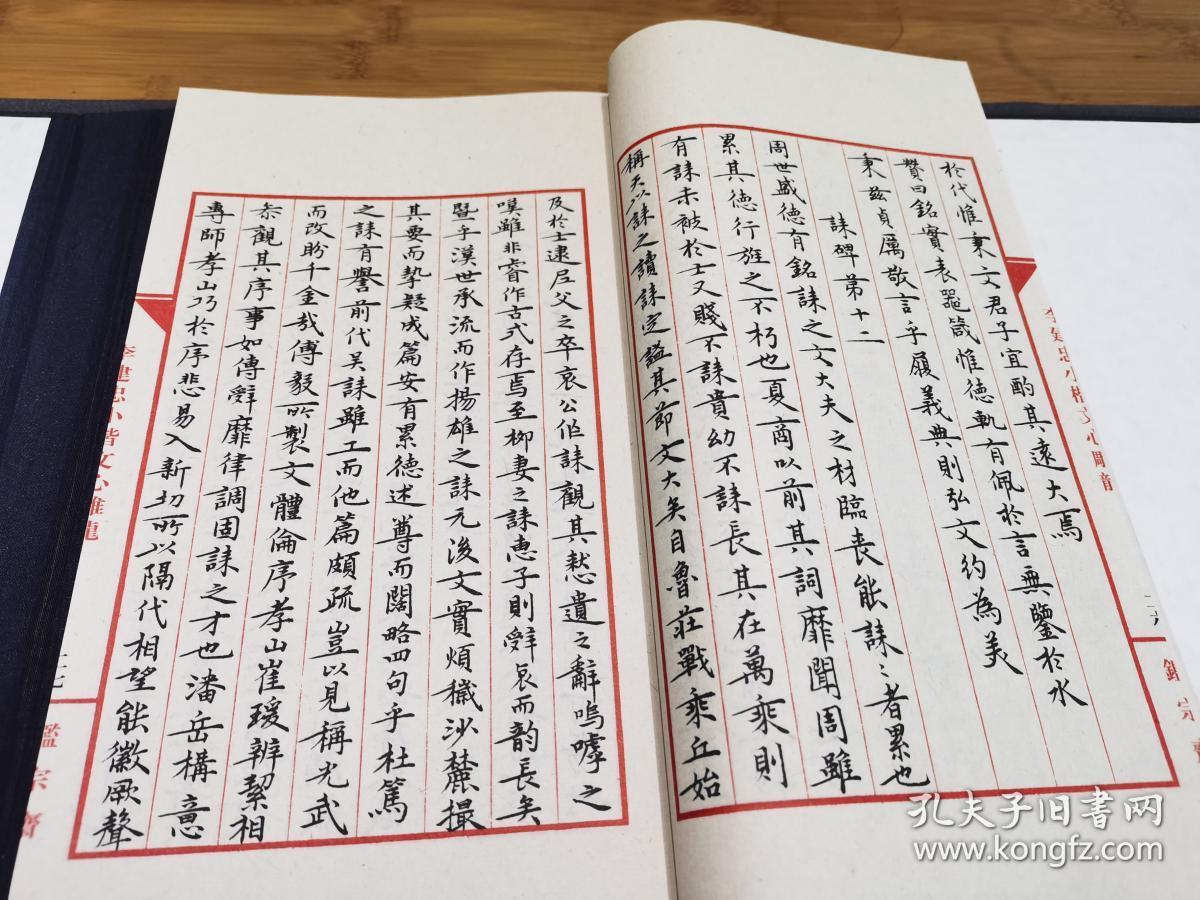 於代惟秉文君子宜酌其遠大焉
贊曰銘實表器箴惟德軌有佩於言無鑒於水
秉茲貞厲敬言乎履義典則弘文約為美
誄碑第十二
周世盛德有銘誄之文大夫之材臨喪能誄〻者累也
累其德行旌之不朽也夏商以前其詞靡聞周雖
有誄未被於士又賤不誄貴幼不誄長其在萬乘則
稱天以誄之讀誄定謚其節文大矣自魯莊戰乘丘始
及於士逮尼父之卒哀公作誄觀其憖遺之辭嗚嘑之
嘆雖非睿作古式存焉至柳妻之誄惠子則辭哀而韵長矣
暨乎漢世承流而作揚雄之誄元後文實煩穢沙麓撮
其要而摯疑成篇安有累德述尊而闊略四句乎杜篤
之誄有譽前代吳誄雖工而他篇頗疏豈以見稱光武
而改盼千金哉傅毅所製文體倫序孝山崔瑗辨絜相
叅觀其序事如傳辭靡律調固誄之才也潘岳構意
專師孝山巧於序悲易入新切所以隔代相望能徽厥聲
李建忠小楷文心雕龍
二七
鑑宗齋
李建忠小楷文心雕龍
二六
孔夫子旧书网
www.kongfz.com